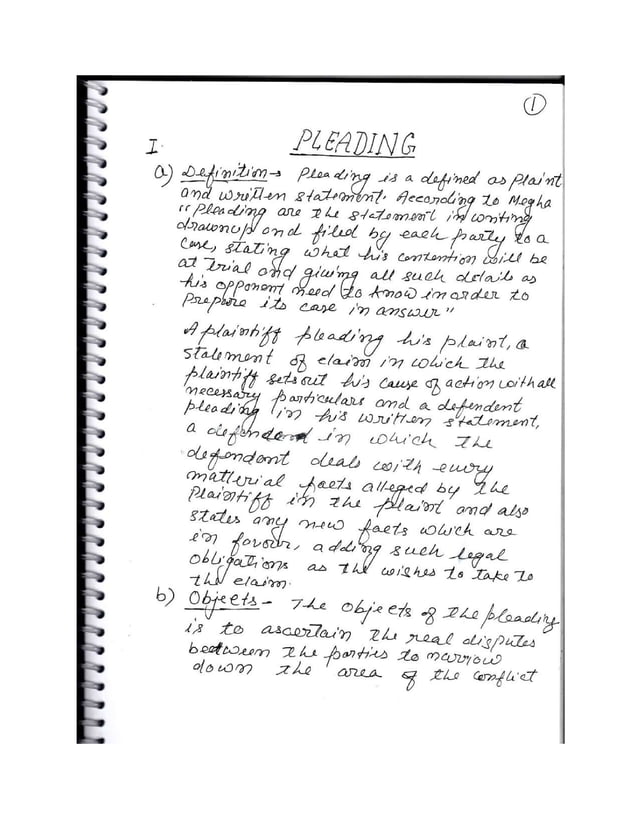 1
I. PLEADING
a) Definition → Pleading is a defined as Plaint
and written statement. According to Megha
"Pleading are the statement in writing
drawnup and filed by each party to a
case, stating what his contention will be
at trial and giving all such details as
his opponent need to know in order to
prepare its case in answer"
A plaintiff pleading his plaint, a
statement of claim in which the
plaintiff sets out his cause of action with all
necessary particulars and a defendent
pleading in his written statement,
a defendend in which the
defendant deals with every
matterial facts alleged by the
Plaintiff in the plaint and also
states any new facts which are
in favour, adding such legal
obligations as the wishes to take to
the claim.
b) Objects - The objects of the pleading
is to ascertain the real disputes
between the parties to narrow
down the area of the conflict